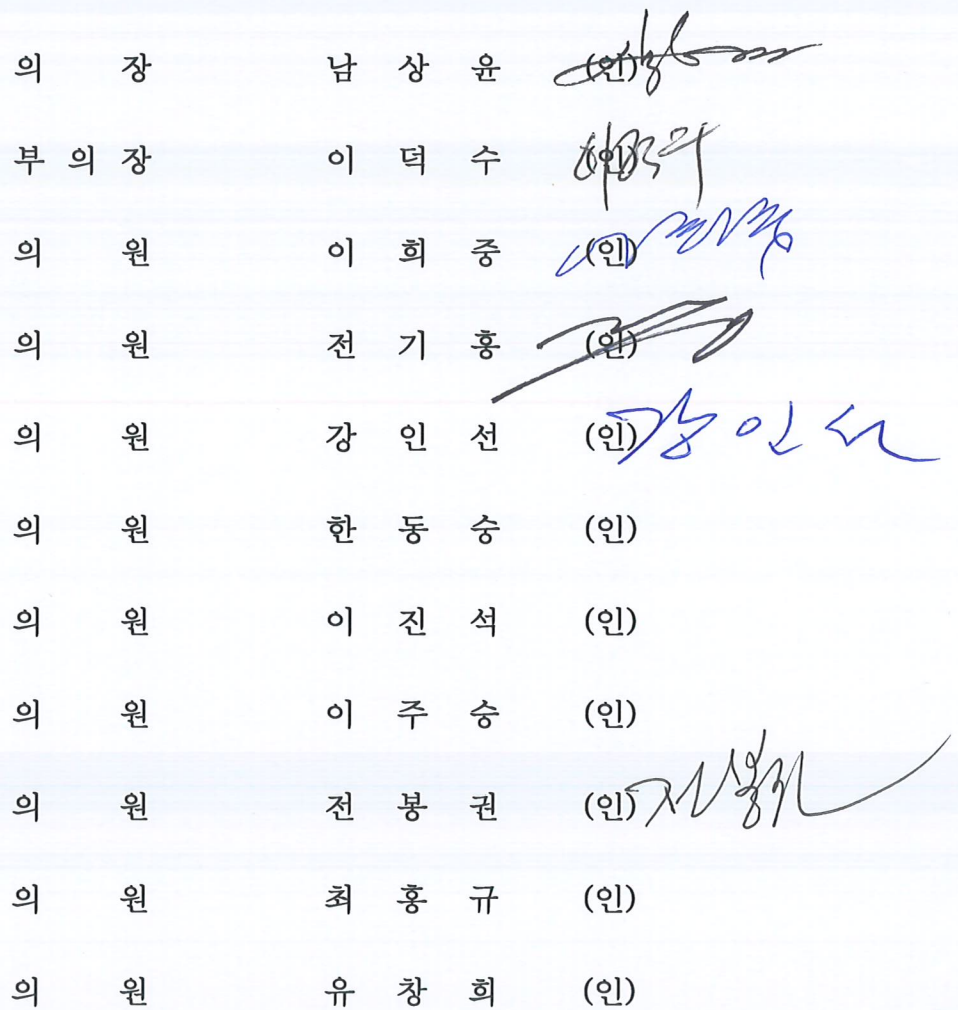 의 장 남 상 윤 (인)
부 의 장 이 덕 수 (인)
의 원 이 희 중 (인)
의 원 전 기 홍 (인)
의 원 강 인 선 (인) 강인선
의 원 한 동 승 (인)
의 원 이 진 석 (인)
의 원 이 주 승 (인)
의 원 전 봉 권 (인) 전봉권
의 원 최 홍 규 (인)
의 원 유 창 희 (인)